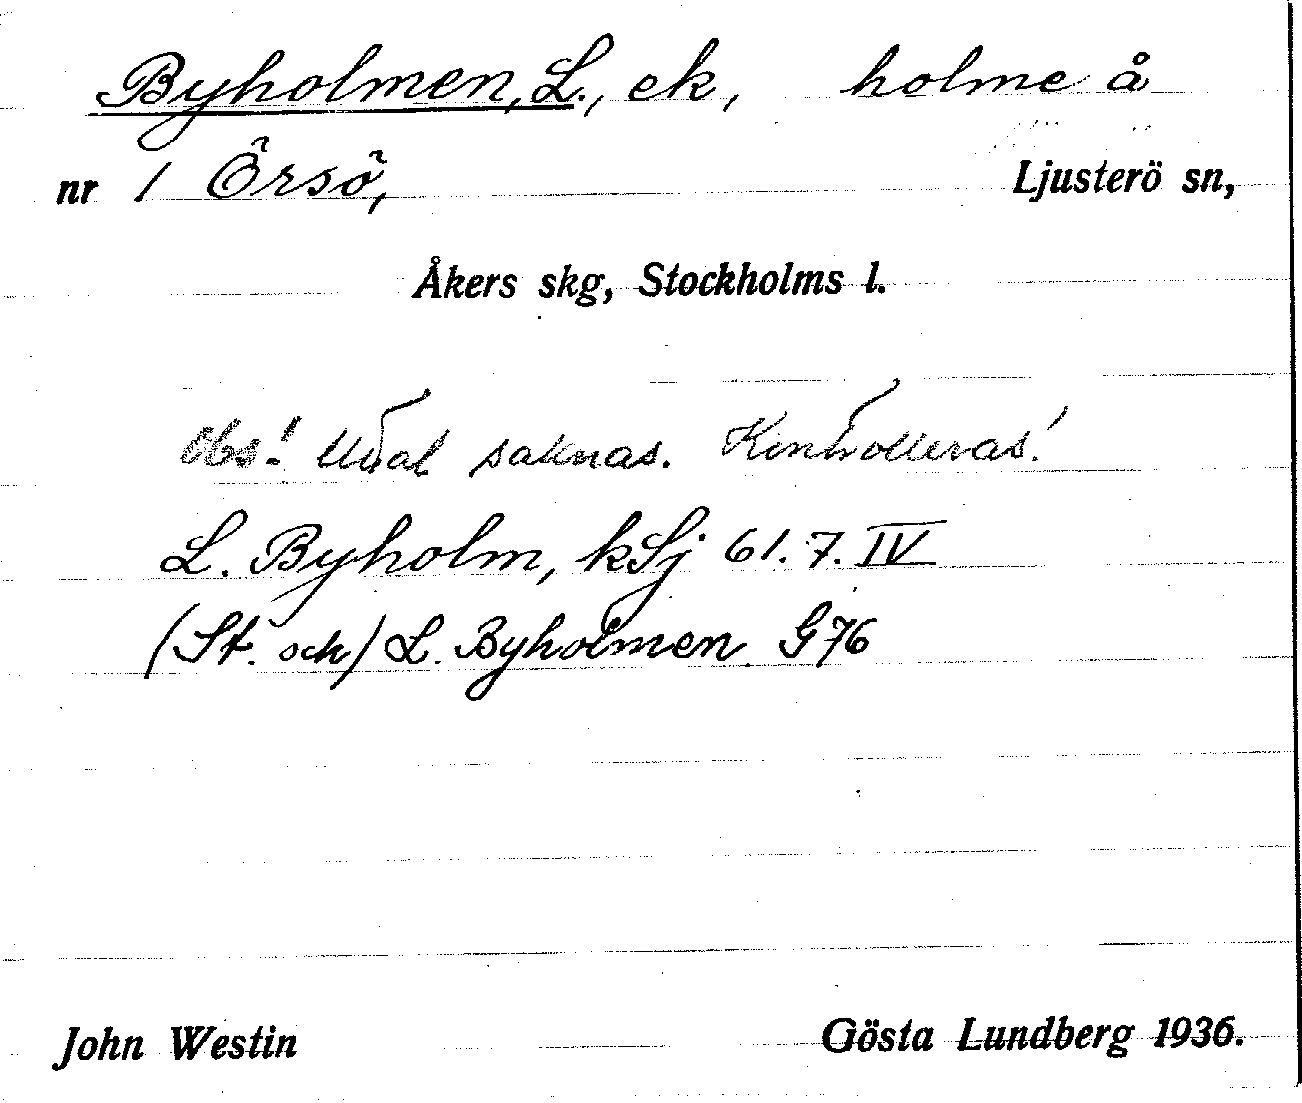 Byholmen, L., ek, holme å
nr 1 Örsö, Ljusterö sn,
Åkers skg, Stockholms l.
Obs! Uttal saknas. Kontrolleras!
L. Byholm, kSj 61.7.IV
(St. och) L. Byholmen G76
John Westin Gösta Lundberg 1936.